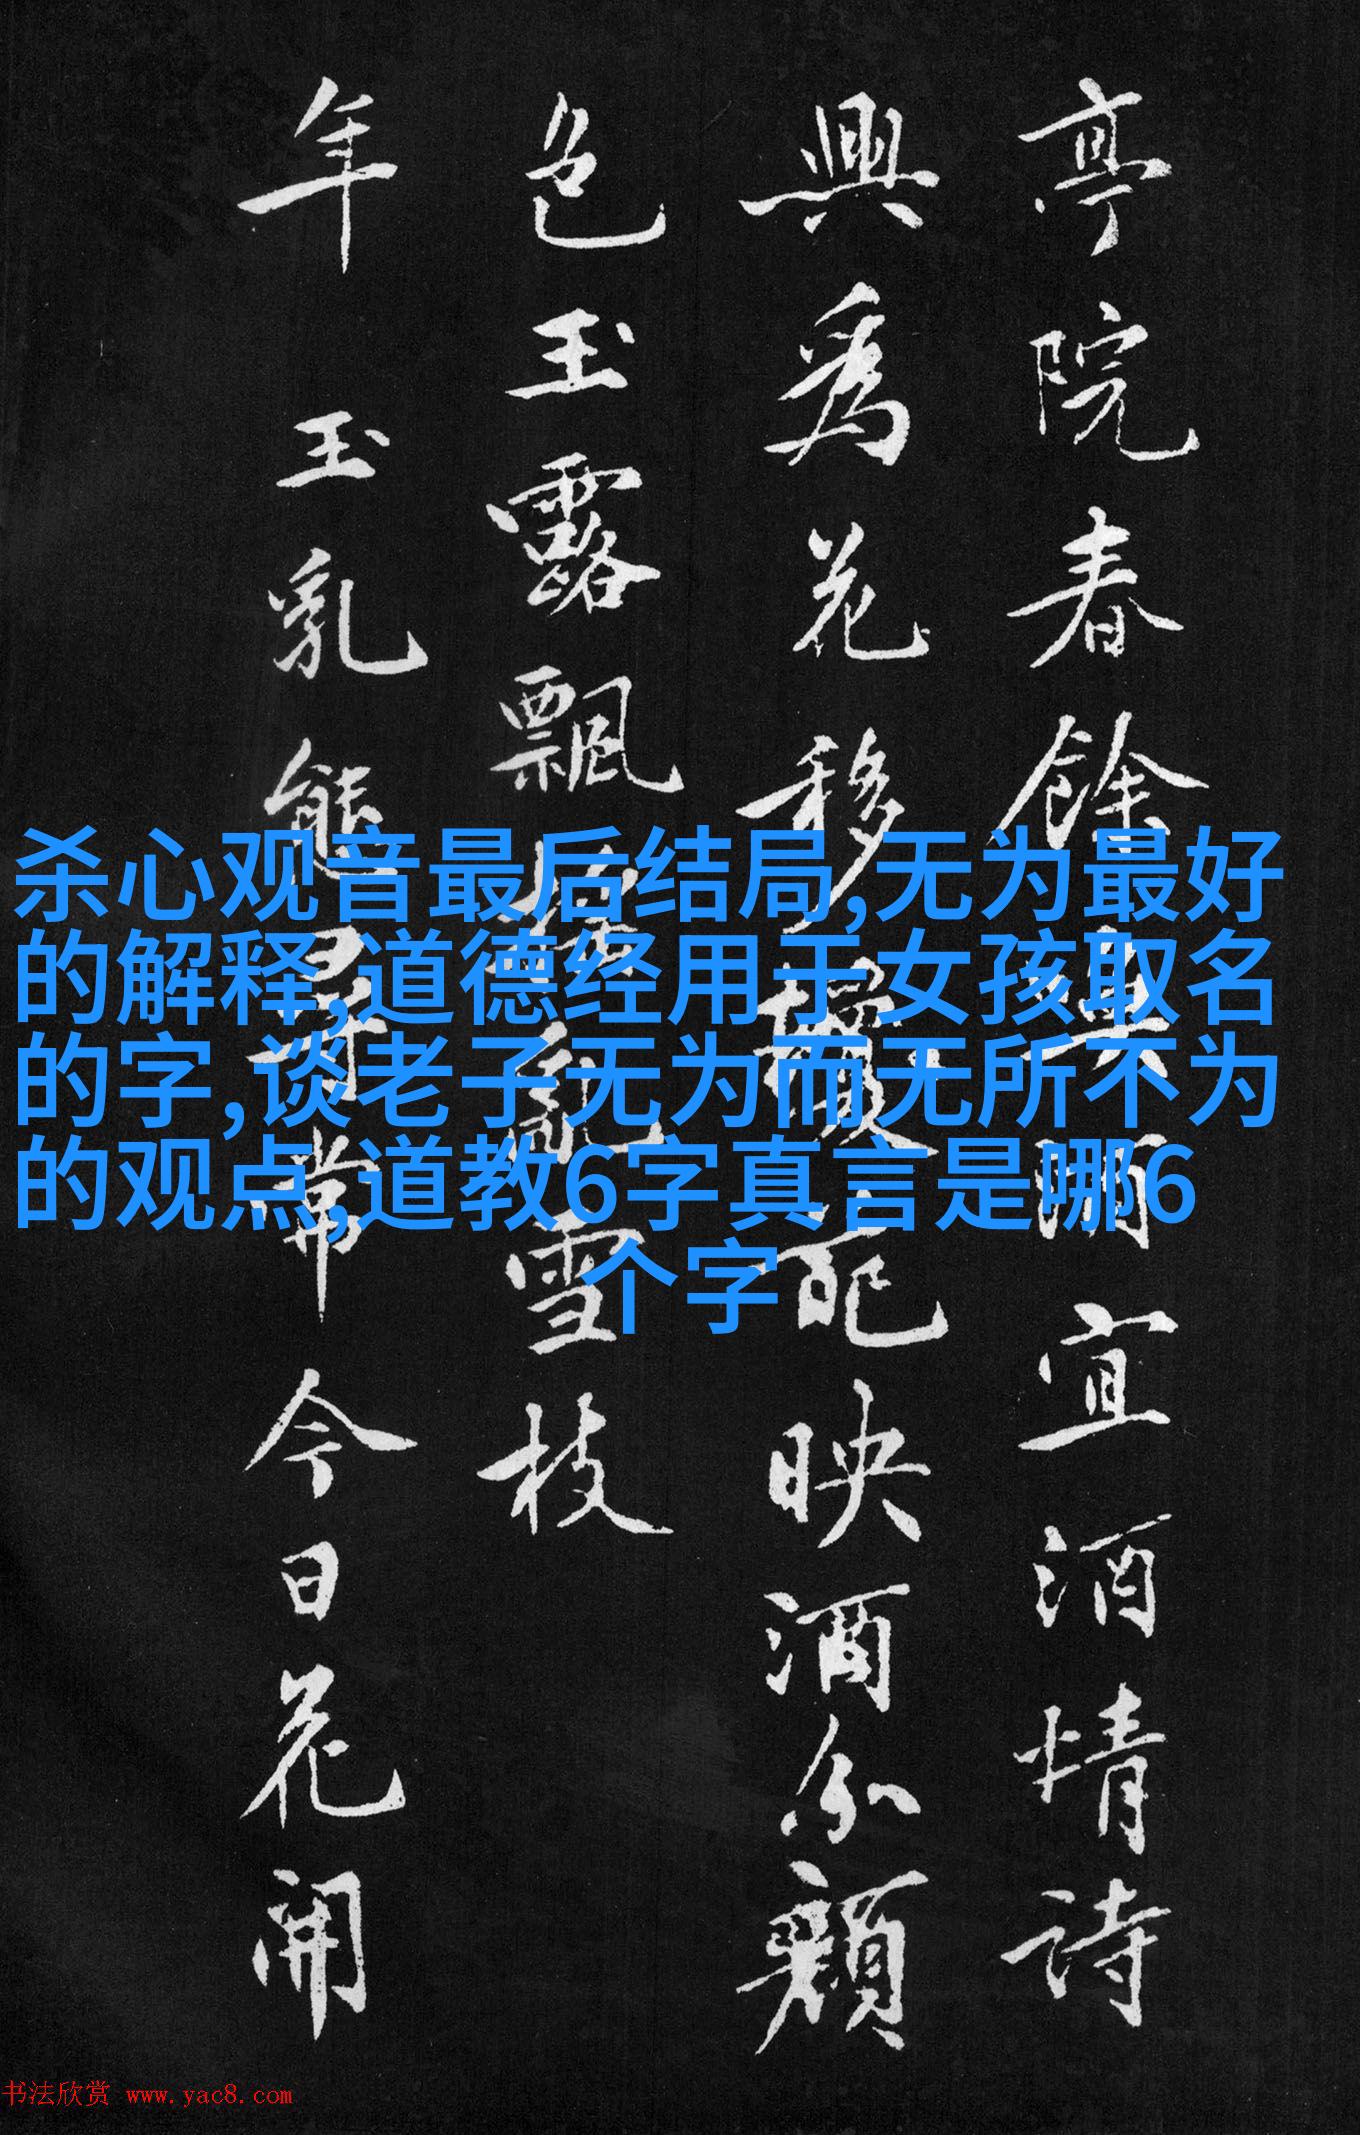 亭院春餘
宜酒情詩
興為花移
映酒分顏
色玉露飄
雪枝
年玉乳能
常今日花開
杀心观音最后结局,无为最好
的解释,道德经用于女孩取名
的字,谈老子无为而无所不为
的观点,道教6字真言是哪6
个字
书法欣赏 www.yac8.com